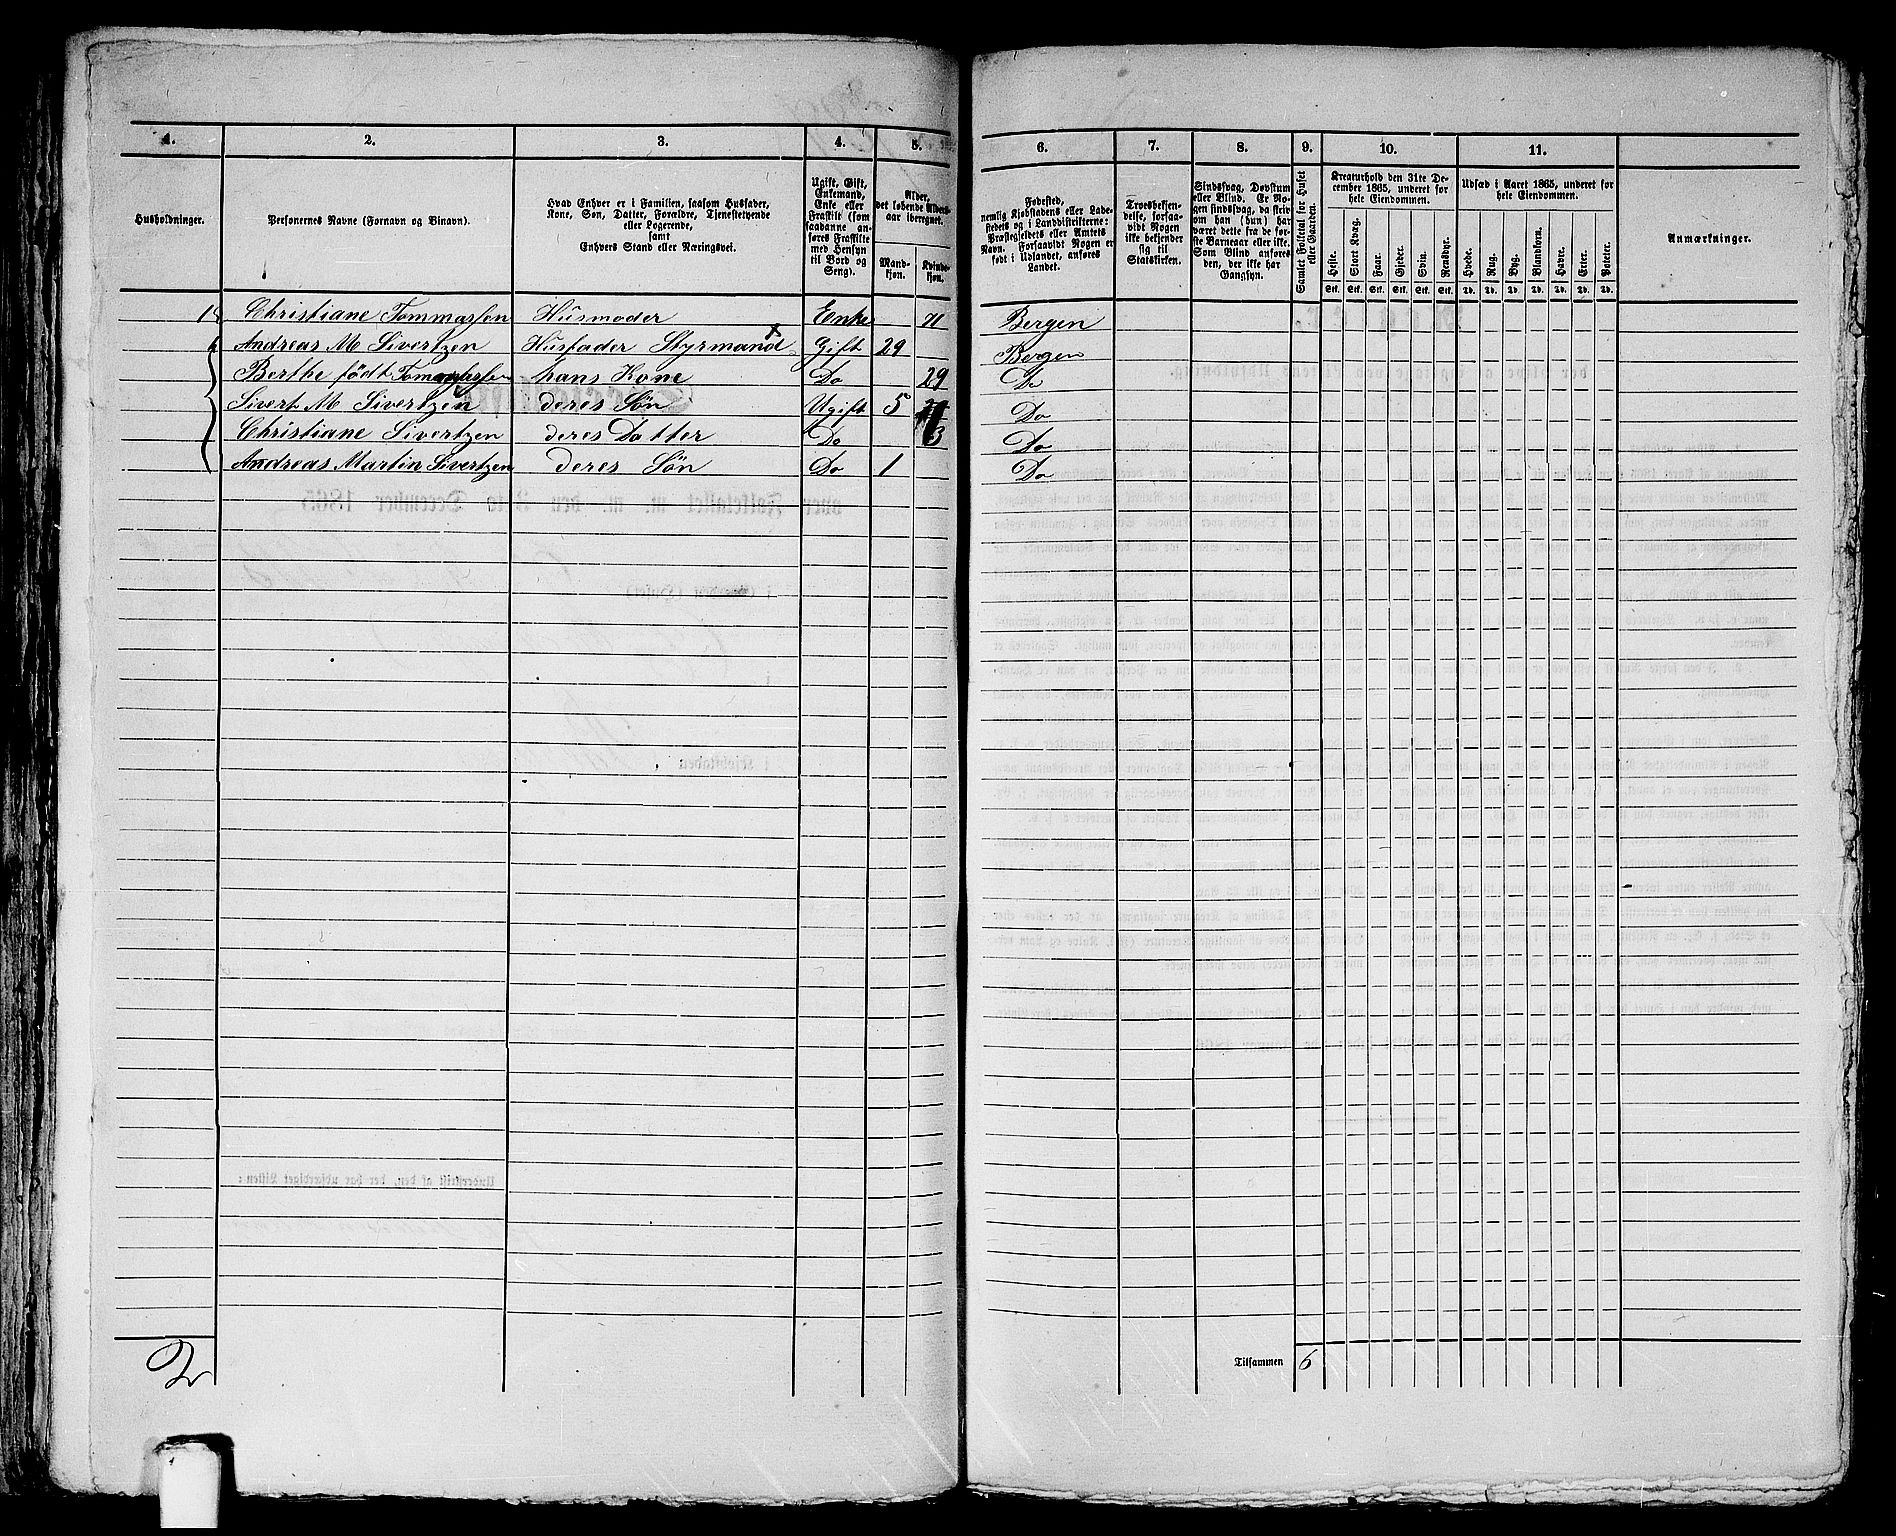 1. 2. 3. 4. 5. 6. 7. 8. 9. 10. 11.
Husholdninger.
Personernes Navne (Fornavn og Binavn).
Hvad Enhver er i Familien, saasom Husfader,
Kone, Søn, Datter, Forældre, Tjenestetyende
eller Logerende,
samt
Enhvers Stand eller Næringsvei.
Ugift, Gift,
Enkemand,
Enke eller
Fraskilt (som
saadanne an-
føres Fraskilte
med Hensyn
til Bord og
Seng).
Alder,
det løbende Alders-
aar iberegnet.
Mand-
kjøn.
Kvinde-
kjøn.
Fødested,
nemlig Kjøbstadens eller Lade-
stedets og i Landdistrikterne:
Præstegjeldets eller Amtets
Navn. Forsaavidt Nogen er
født i Udlandet, anføres
Landet.
Troesbekjen-
delse, forsaa-
vidt Nogen
ikke bekjender
sig til
Statskirken.
Sindssvag, Døvstum
eller Blind. Er No-
gen sindssvag, da skriv
om han (hun) har
været dette fra de før-
ste Barneaar eller ikke.
Som Blind anføres
den, der ikke har
Gangsyn.
Samlet Folketal for Huset
eller Gaarden.
Kreaturhold den 31te De-
cember 1865, underet for
hele Eiendommen.
Heste. Stort Kvæg. Faar. Gjeder. Svin. Rensdyr.
Stk. Stk. Stk. Stk. Stk. Stk.
Udsæd i Aaret 1865, underet for
hele Eiendommen.
Hvede. Rug. Byg. Blandkorn. Havre. Erter. Poteter.
Td. Td. Td. Td. Td. Td. Td.
Anmærkninger.
Christiane Tommassen Husmoder Enke 71 Bergen
Andreas M Sivertzen Husfader Styrmand Gift 29 Bergen
Berthe født Tommassen hans Kone Do 29 Do
Sivert M Sivertzen deres Søn Ugift 5 Do
Christiane Sivertzen deres Datter Do 3 Do
Andreas Martin Sivertzen deres Søn Do 1 Do
2
Tilsammen 6